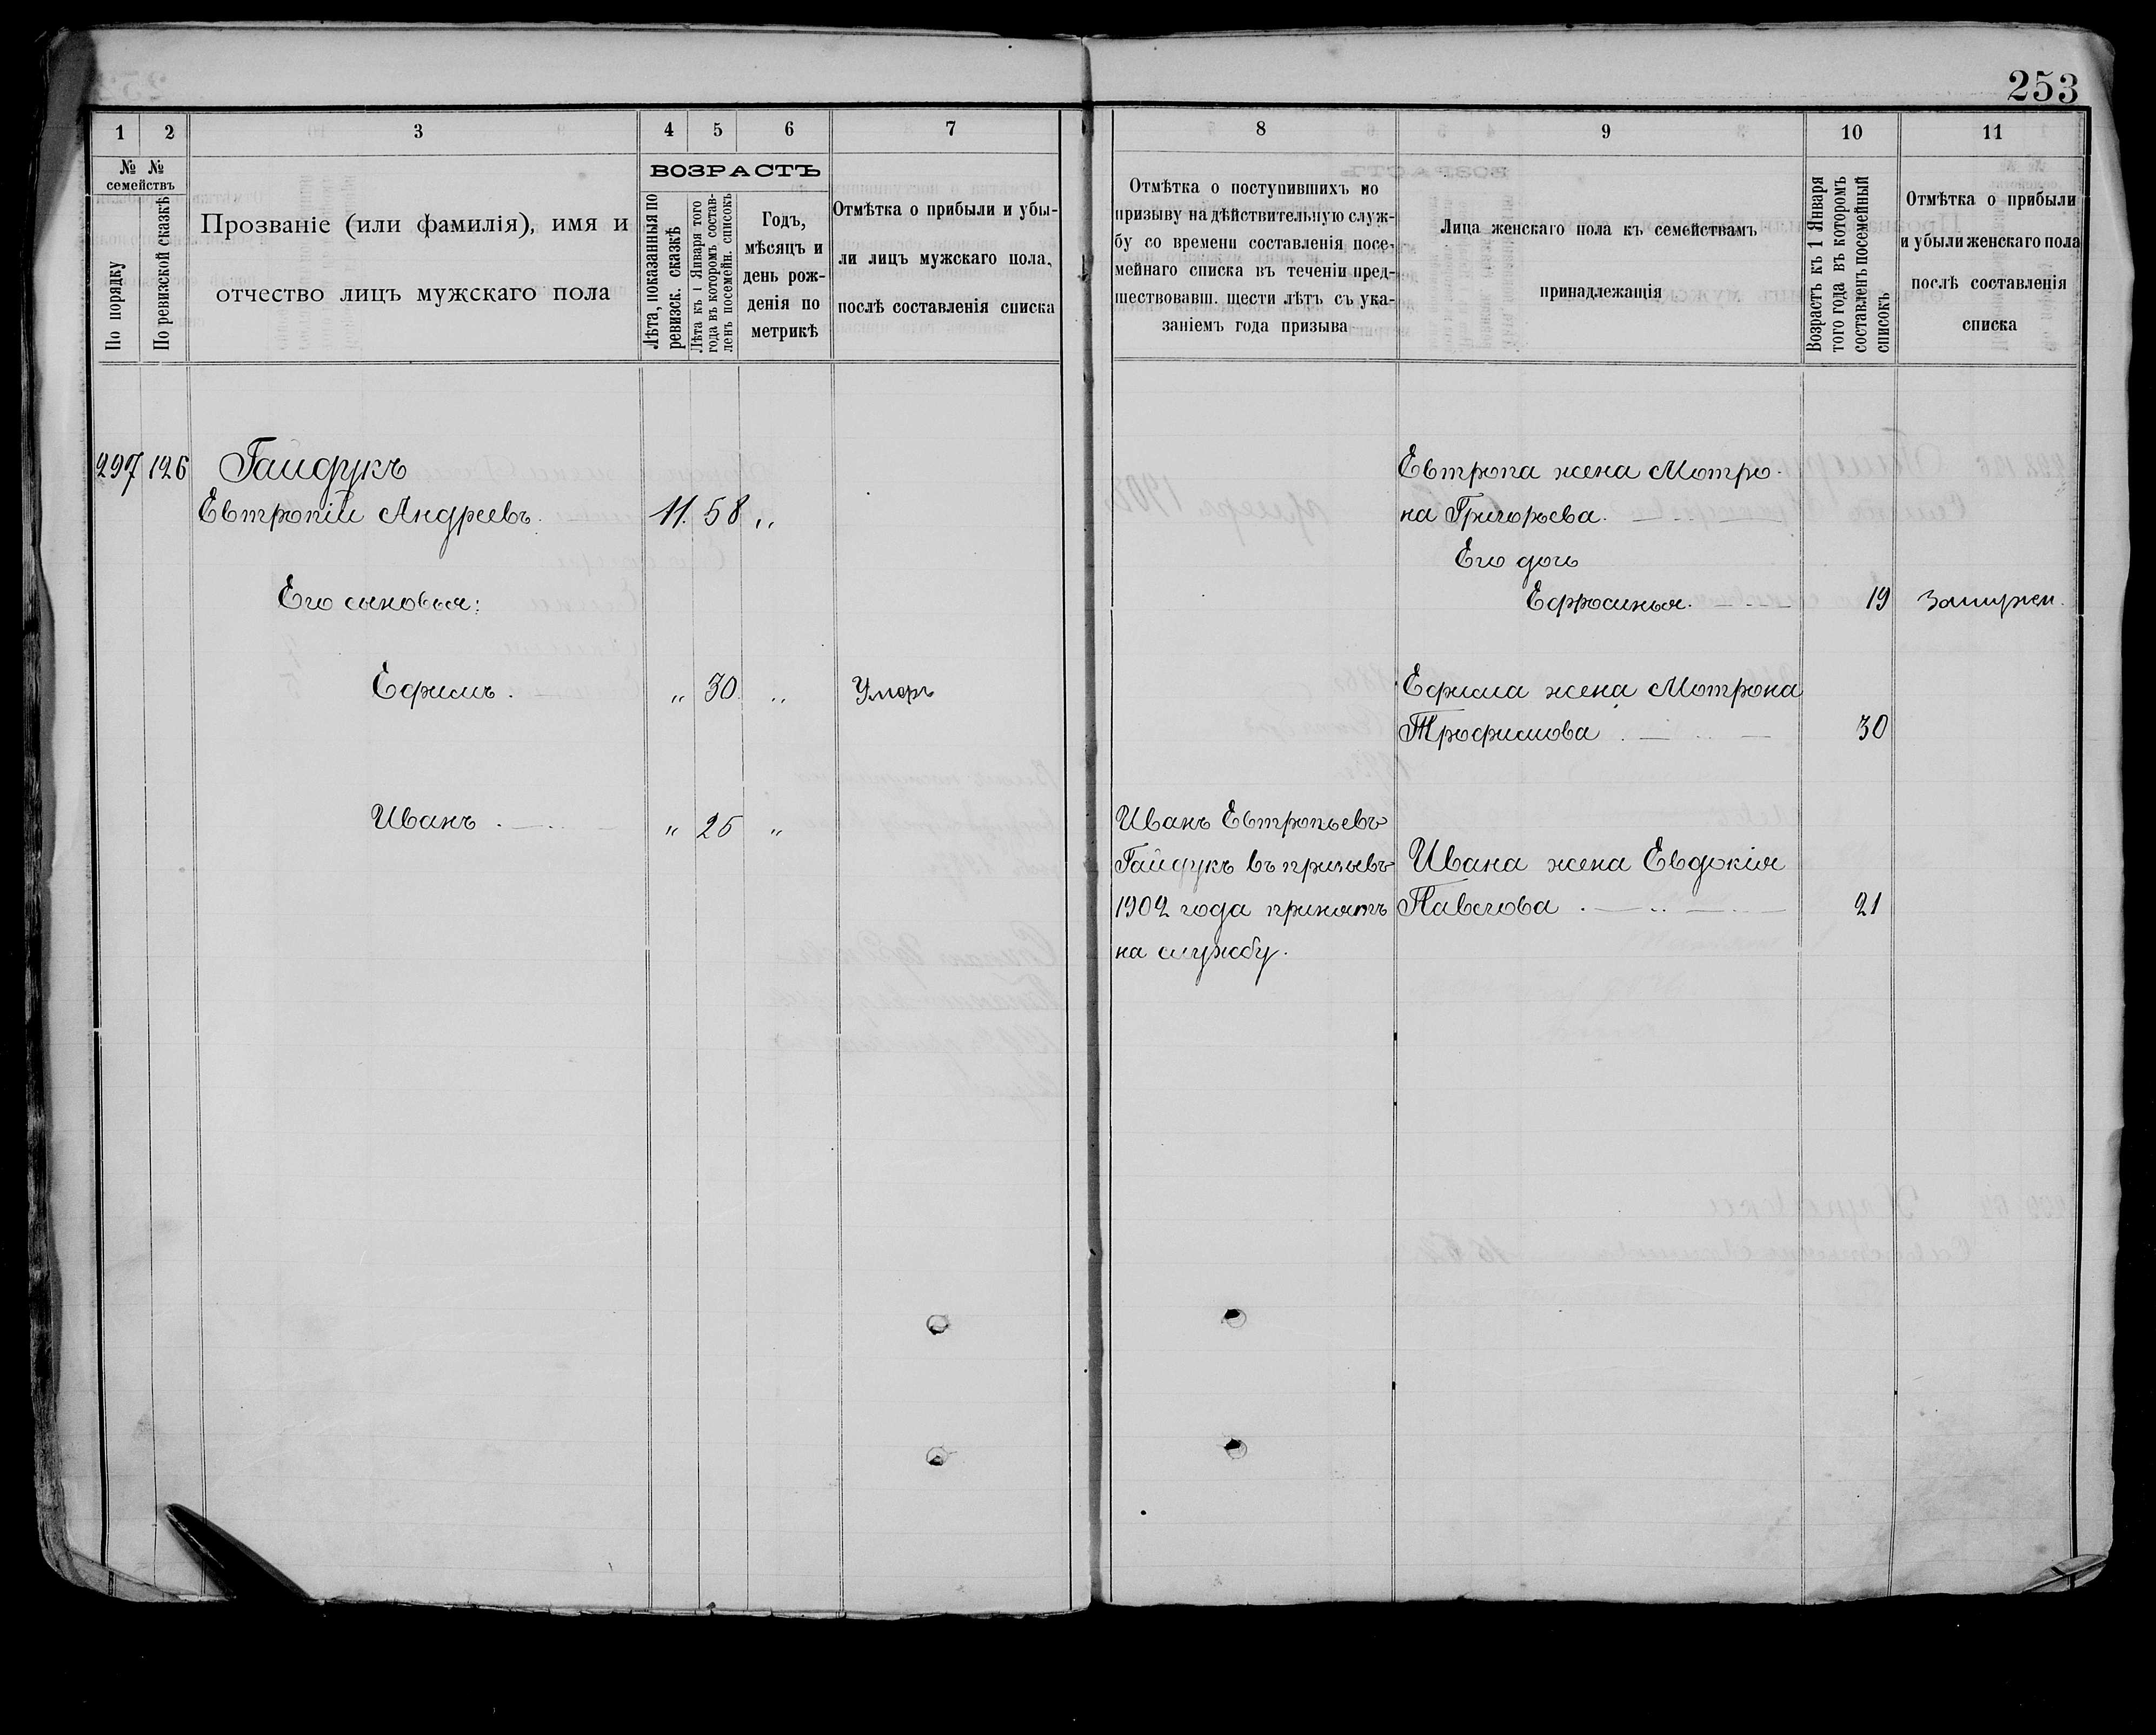 253
1 2 3 4 5 6 7
№ № семействъ
По порядку
По ревизской сказкѣ
Прозваніе (или фамилія), имя и
отчество лицъ мужскаго пола
ВОЗРАСТЪ
Лѣта, показанныя по
ревизск. сказкѣ
Лѣта къ 1 Января того
года въ которомъ состав-
ленъ посемейн. списокъ
Годъ,
мѣсяцъ и
день рож-
денія по
метрикѣ
Отмѣтка о прибыли и убы-
ли лицъ мужскаго пола,
послѣ составленія списка
297 126 Гайдукъ
Евтропій Андреевъ. 11. 58 „
Его сыновья:
Ефимъ. „ 30. „ Умеръ
Иванъ. „ 25 „
8 9 10 11
Отмѣтка о поступившихъ по
призыву на дѣйствительную служ-
бу со времени составленія посе-
мейнаго списка въ теченіи пред-
шествовавш. шести лѣтъ съ ука-
заніемъ года призыва
Лица женскаго пола къ семействамъ
принадлежащія
Возрастъ къ 1 Января
того года въ которомъ
составленъ посемейный
списокъ
Отмѣтка о прибыли
и убыли женскаго пола
послѣ составленія
списка
Евтропа жена Мотро-
на Григорьева.
Его дочь
Ефросинья. 19 Замужем.
Ефима жена Мотрона
Трофимова 30
Иванъ Евтропьевъ
Гайдукъ въ призывъ
1902 года принятъ
на службу.
Ивана жена Евдокія
Павлова 21